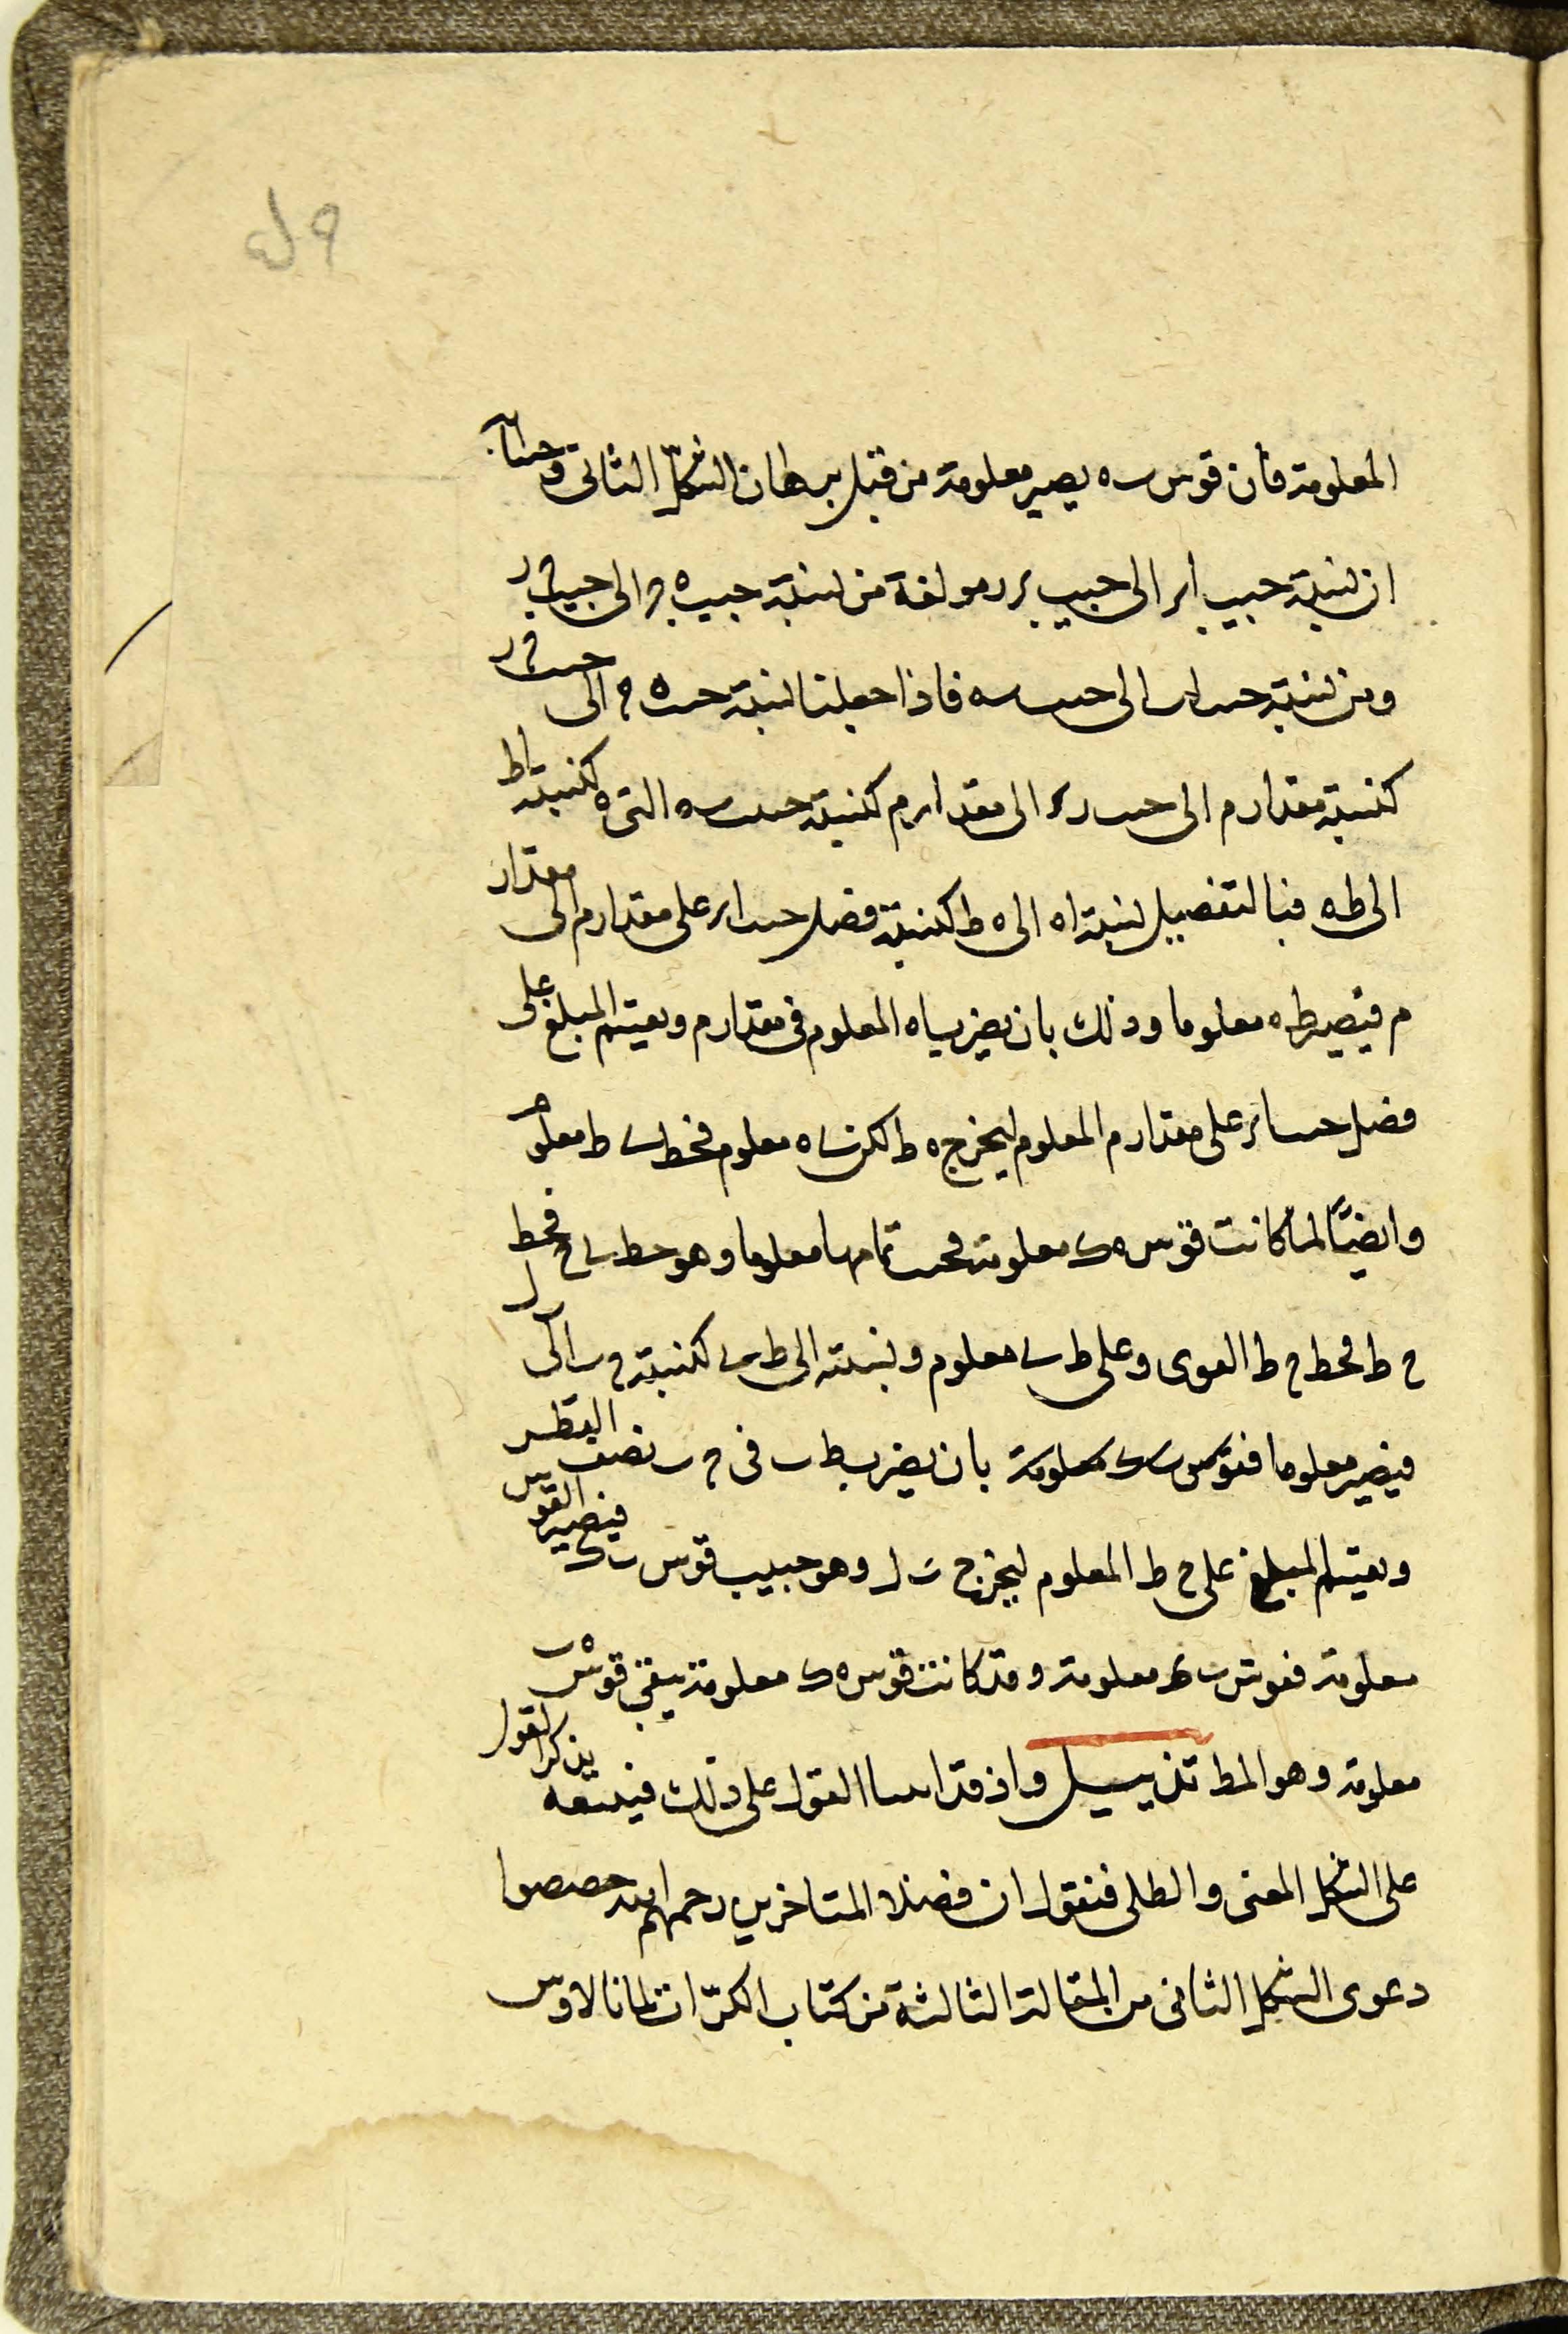 المعلومة فان قوس ىه يصير معلومة من قبل برهان الشكل الثانى وحساب
ان نسبة جيب ار الى جيب ىر مولفة من نسبة جيب ه ح الى جيب ح ر
ومن نسبة حب اى الى حب ىه فاذا جعلنا نسبة حب ه ح الى حب ح ر
كنسبة مقدار م الى حب رى الى مقدار م كنسبة حب ىه التى ه كنسبة اط
الى طه فبالتفصيل نسبة اه الى ه ط كنسبة فضل حب ار على مقدار م الى مقدار
م فيصير طه معلوما وذلك بان يضرب اه المعلوم فى مقدار م ويقسم المبلغ على
فضل حب ار على مقدار م المعلوم ليخرج ه ط لكن ىاه معلوم فخط ى ط معلوم
وايضًا لما كانت قوس ه ك معلومة فحب تمامها معلوما وهو خط ى ح فخط
ح ط فخط ح ط القوى وعلى ط ى معلوم ونسبته الى ط ى كنسبة ح ى الى ىل
فيصير معلوما فقوس ىك معلومة بان يضرب ط ى فى ح ى نصف القطر
ويقسم المبلغ على ح ط المعلوم ليخرج ىل وهو جيب قوس ىك فيصير القوس
معلومة فقوس ىك معلومة وقد كانت قوس ه ك معلومة يبقى قوس ه ى
معلومة وهو المط تذييل واذ قد اىىىا القول على ذلك فنتبعه بذكر القول
على الشكل المغنى والظلى فنقول ان فضلا المتاخرين رحمهم الله خصصوا
دعوى الشكل الثانى من المقالة الثالثة من كتاب الكرّات لمانالاوس